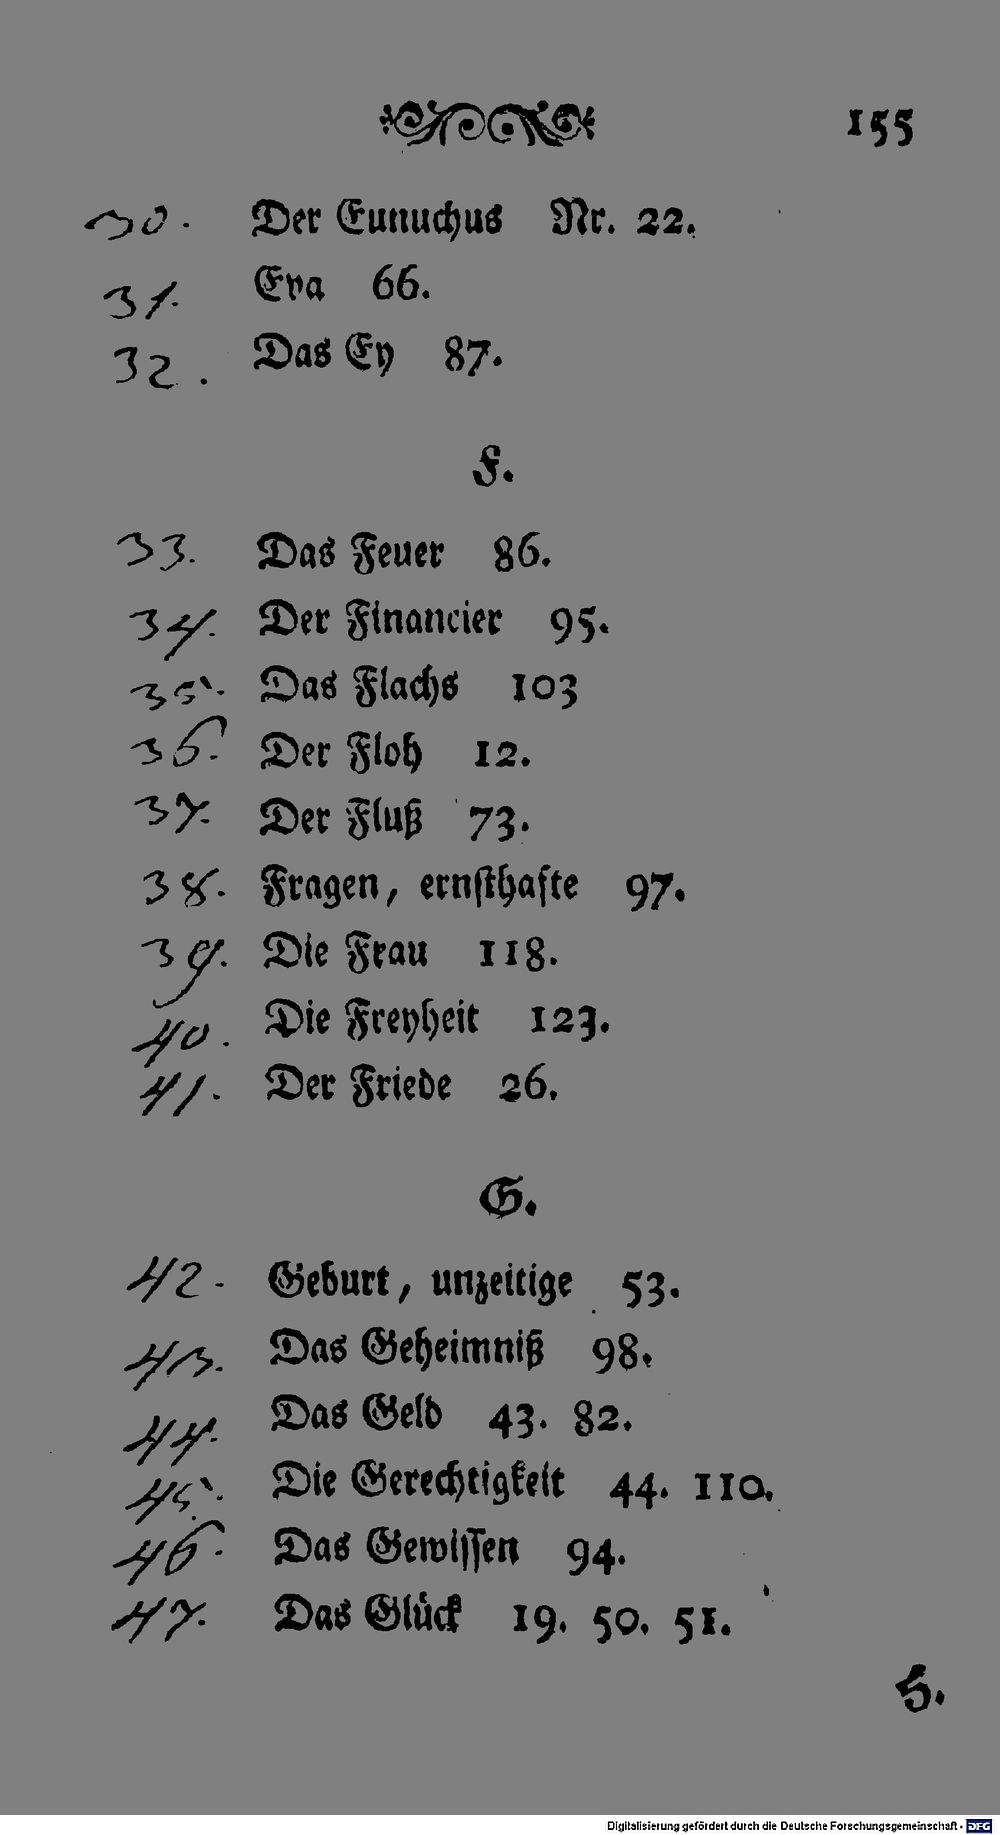 155
30. Der Eunuchus Nr. 22.
31. Eva 66.
32. Das Ey 87.
F.
33. Das Feuer 86.
34. Der Financier 95.
35. Das Flachs 103
36. Der Floh 12.
37. Der Fluß 73.
38. Fragen, ernſthafte 97.
39. Die Frau 118.
40. Die Freyheit 123.
41. Der Friede 26.
G.
42. Geburt, unzeitige 53.
43. Das Geheimniß 98.
44. Das Geld 43. 82.
45. Die Gerechtigkeit 44. 110.
46. Das Gewiſſen 94.
47. Das Glück 19. 50. 51.
H.
Digitalisierung gefördert durch die Deutsche Forschungsgemeinschaft - DFG